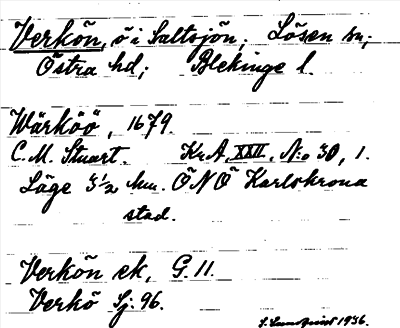 Verkön, ö i Saltsjön; Lösen sn;
Östra hd; Blekinge l.
Wärköö, 1679.
C. M. Stuart. KrA XXII, N:o 30, 1.
Läge 3 1/2 km. ÖNÖ Karlskrona
stad.
Verkön ek, G. 11.
Verkö Sj: 96.
S. Lundquist 1936.